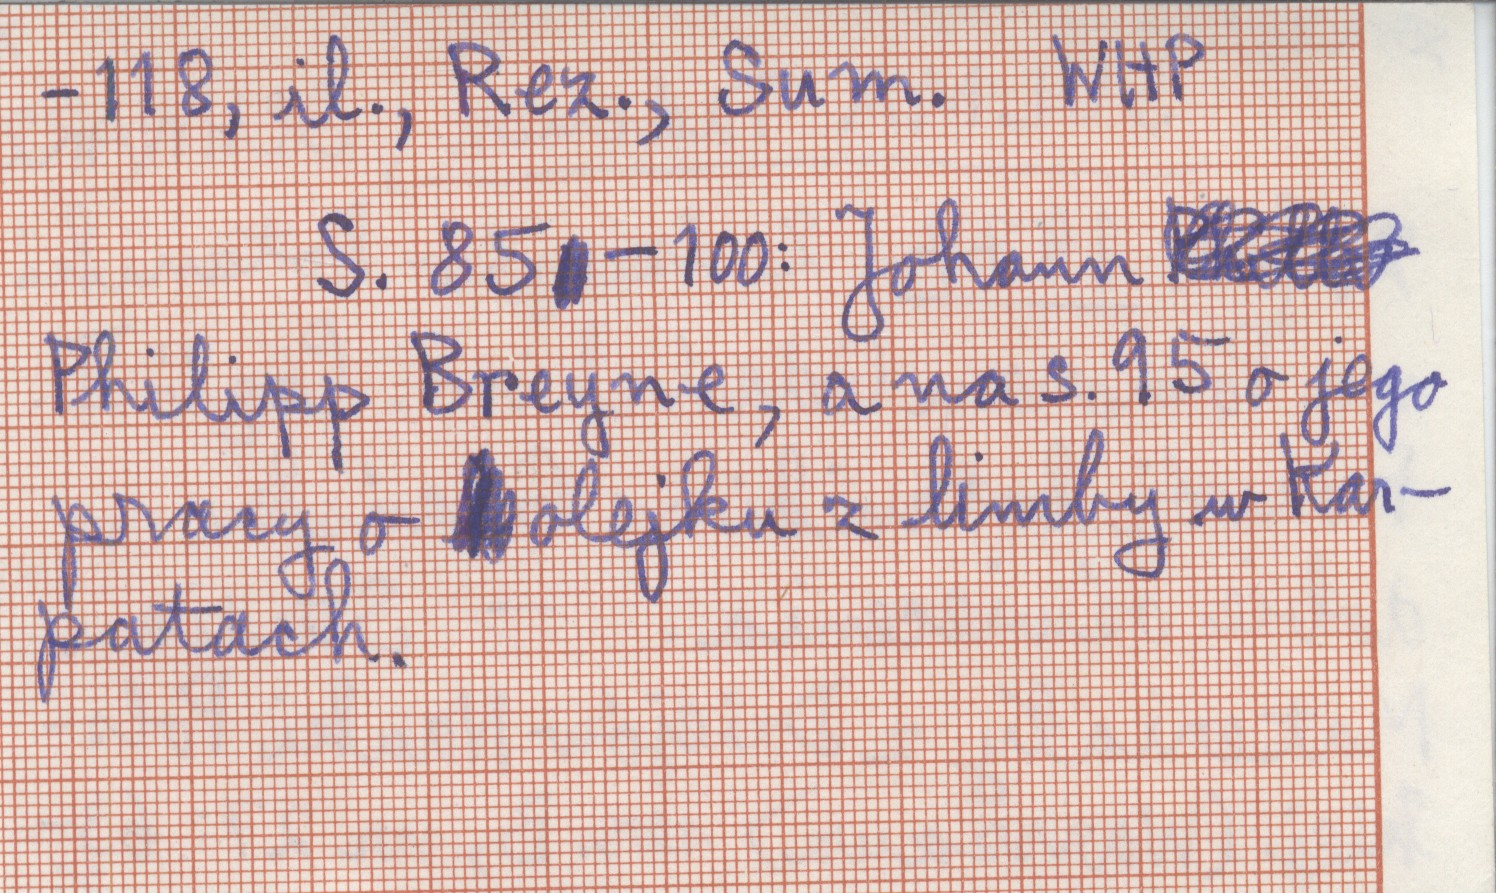 -118, il., Rez., Sum. WHP
S. 85-100: Johann
Philipp Breyne, a na s. 95 o jego
pracy o olejku z limby w Kar-
patach.